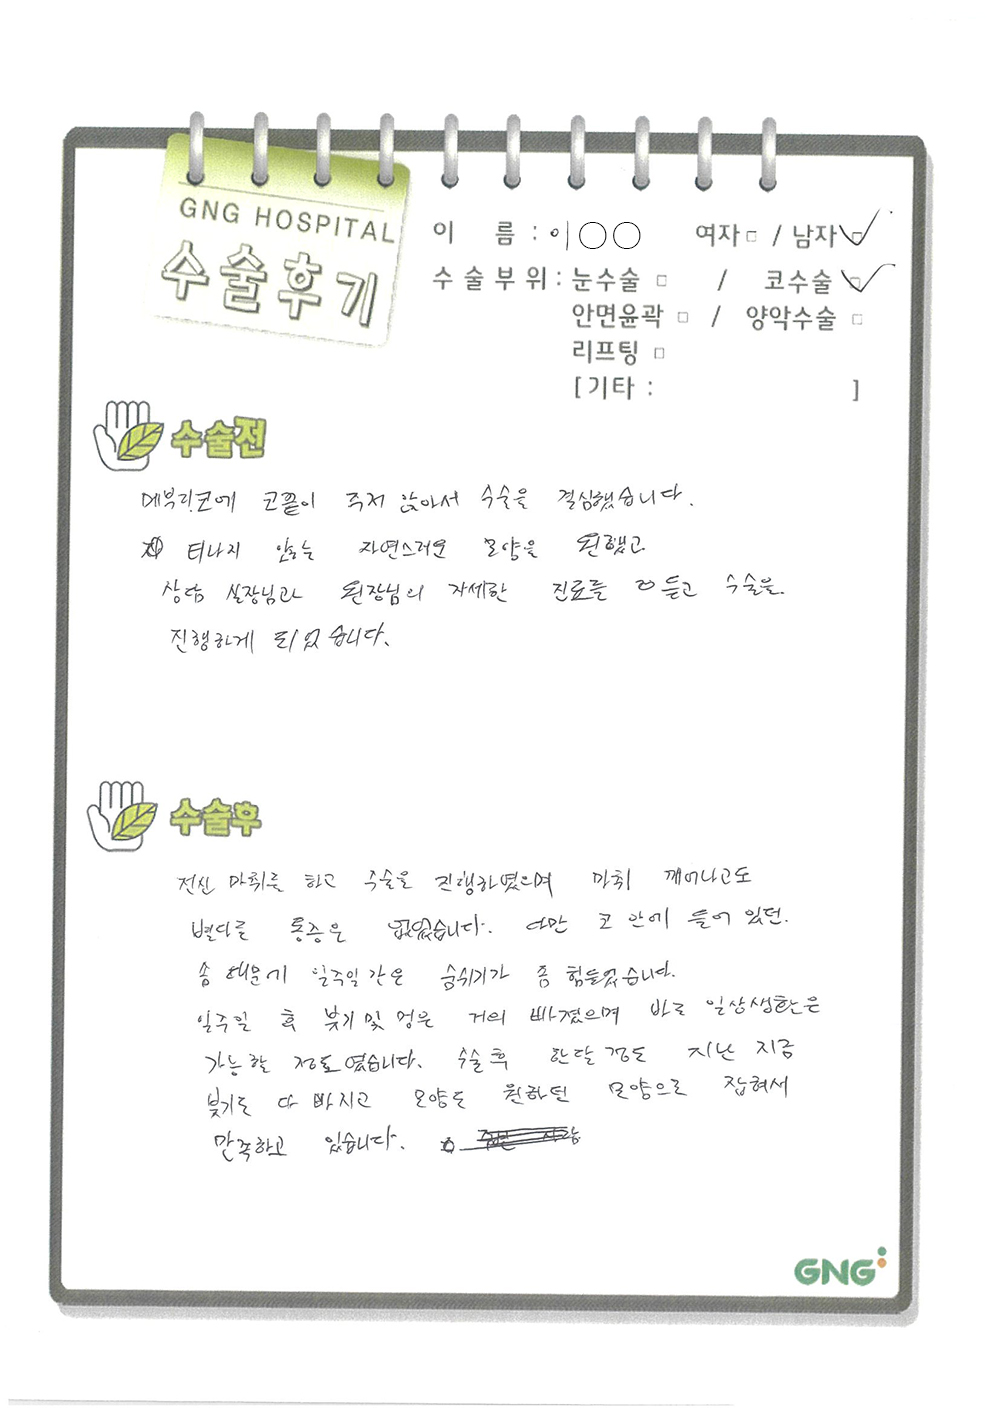 GNG HOSPITAL
수술후기
이 름 : 이○○ 여자 □ / 남자 ☑
수술부위 : 눈수술 □ / 코수술 ☑
안면윤곽 □ / 양악수술 □
리프팅 □
[기타 : ]
수술전
메부리코에 코끝이 주저 앉아서 수술을 결심했습니다.
티나지 않는 자연스러운 모양을 원했고
상담 실장님과 원장님의 자세한 진료를 듣고 수술을
진행하게 되었습니다.
수술후
전신 마취를 하고 수술을 진행하였으며 마취 깨어나고도
별다른 통증은 없었습니다. 다만 코 안에 들어 있던.
솜 때문에 일주일간은 숨쉬기가 좀 힘들었습니다.
일주일 후 붓기 및 멍은 거의 빠졌으며 바로 일상생활은
가능할 정도였습니다. 수술후 한달 정도 지난 지금
붓기도 다 빠지고 모양도 원하던 모양으로 잡혀서
만족하고 있습니다.
GNG